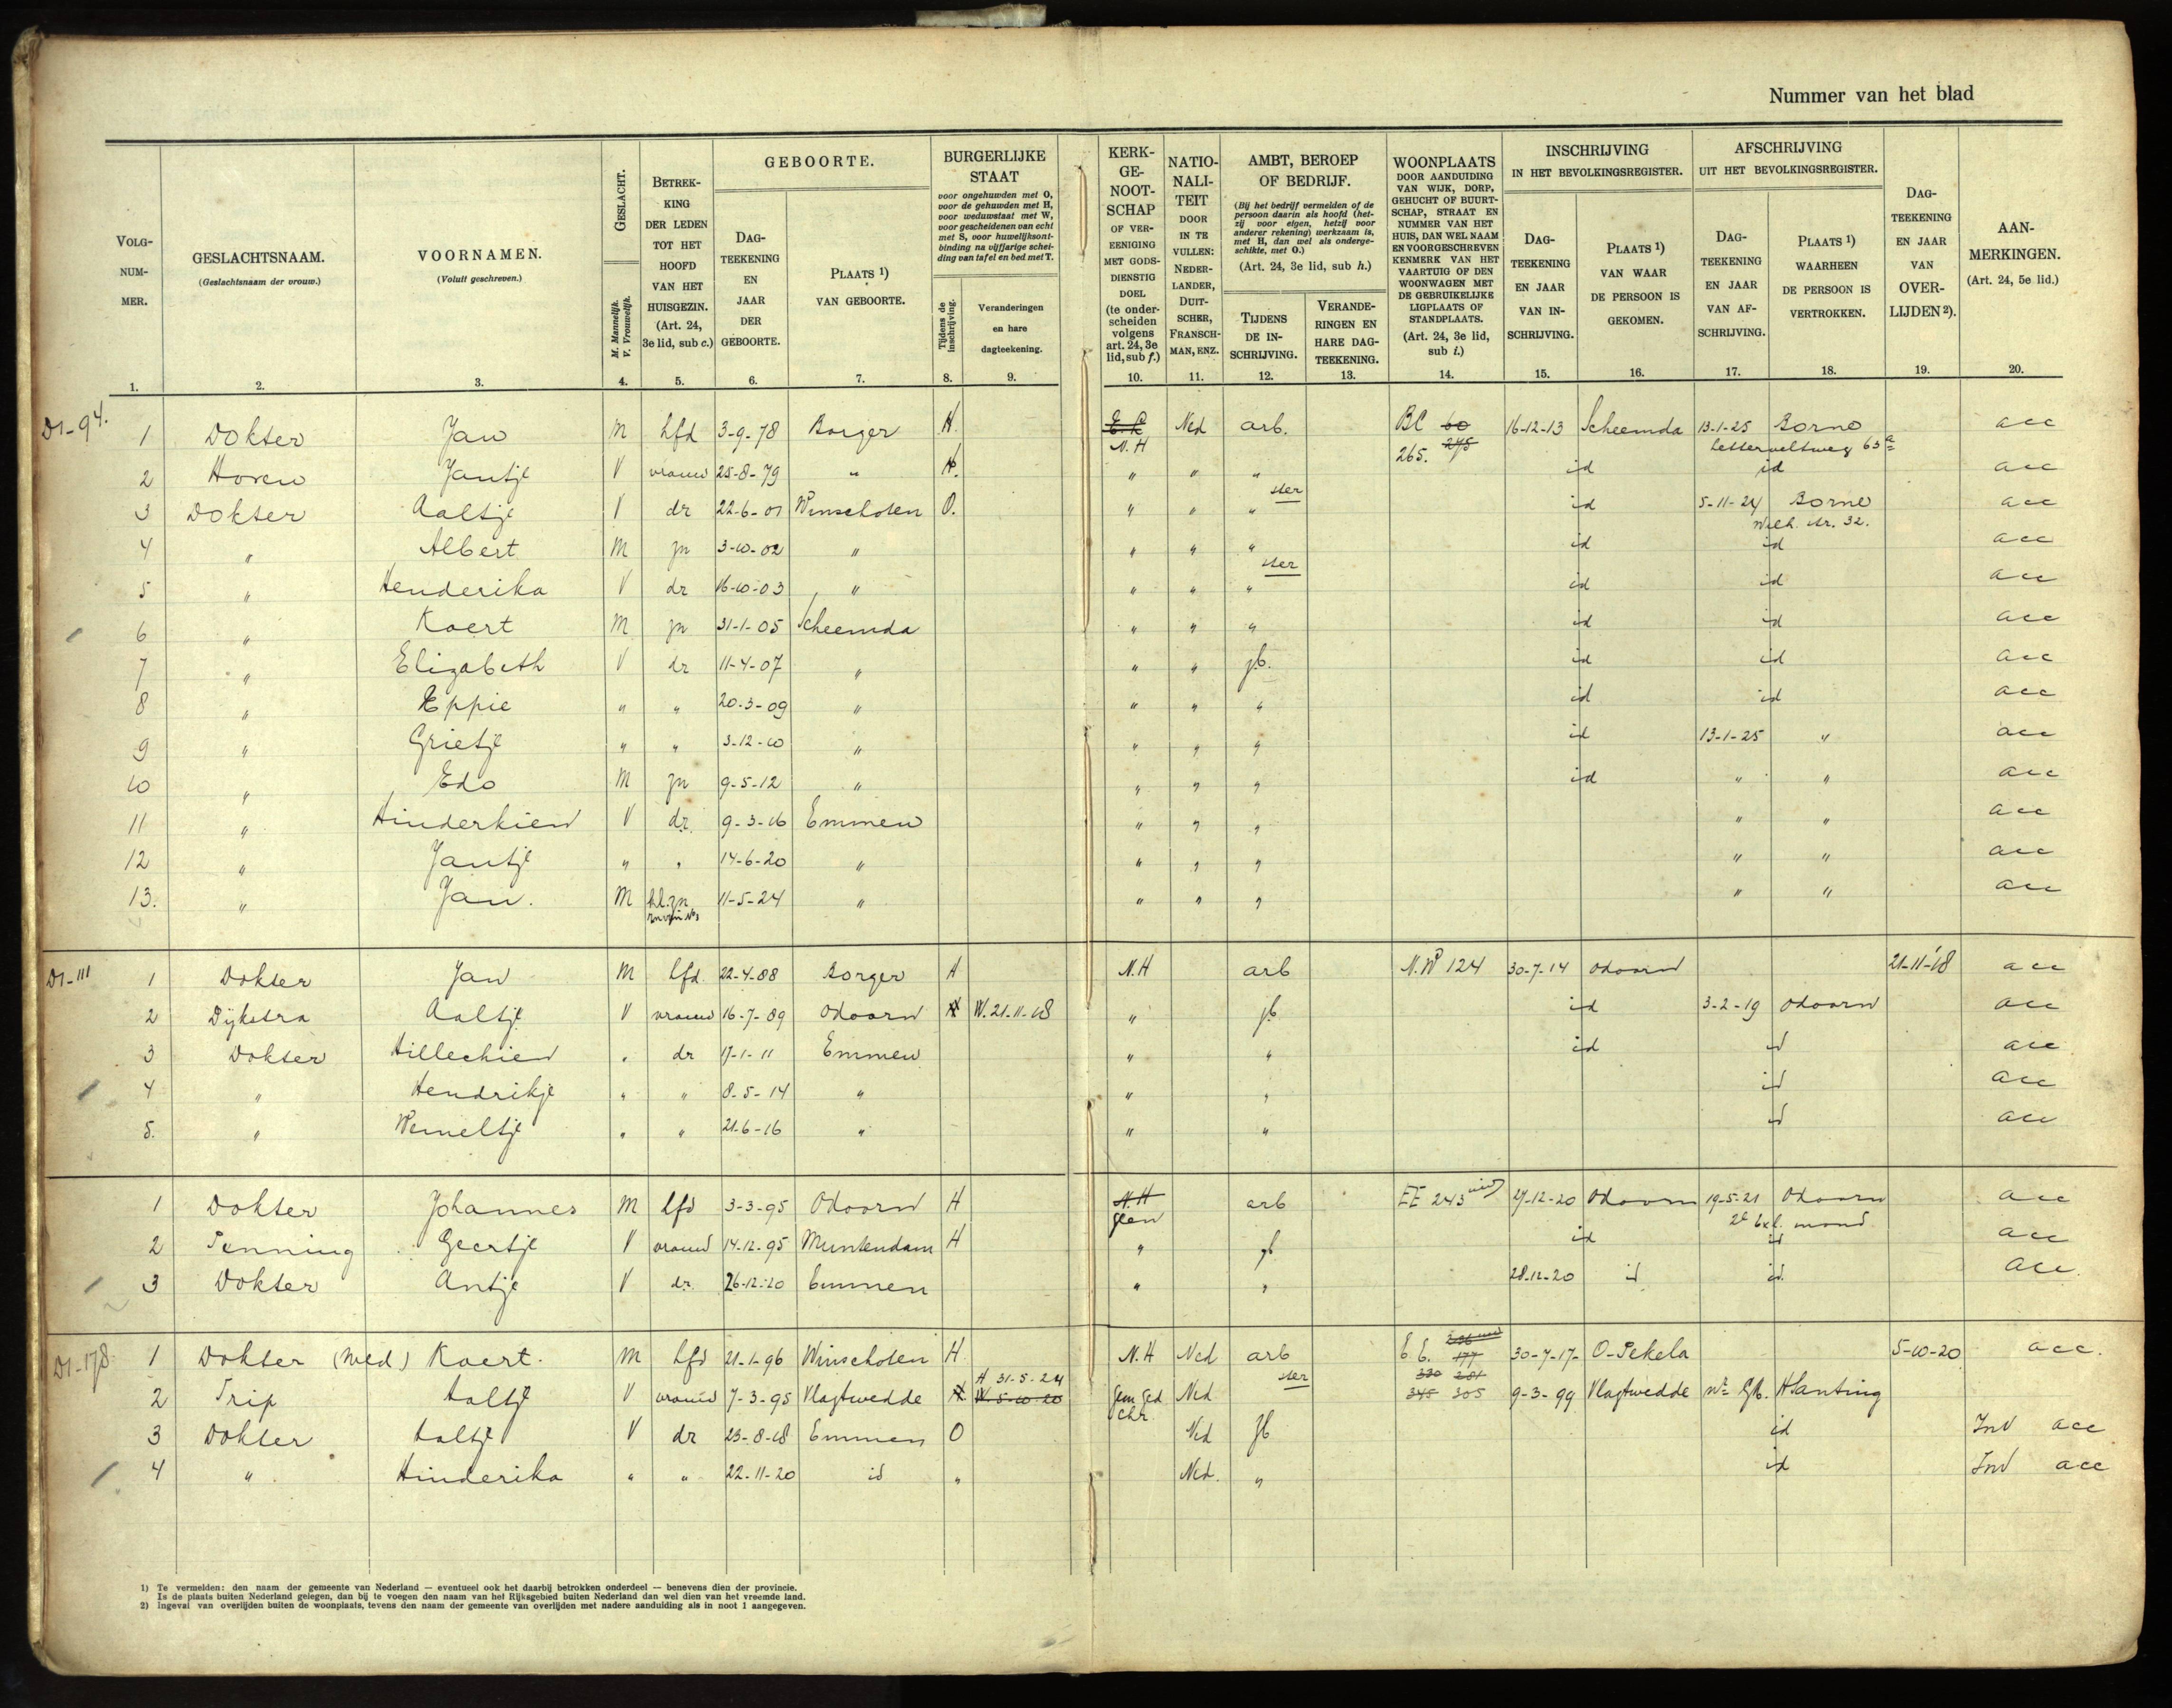 Nummer van het blad
VOLG-NUM-MER. 1.
GESLACHTSNAAM. (Geslachtsnaam der vrouw.) 2.
VOORNAMEN. (Voluit geschreven.) 3.
GESLACHT. M. Mannelijk. V. Vrouwelijk. 4.
BETREK-KING DER LEDEN TOT HET HOOFD VAN HET HUISGEZIN. (Art. 24, 3e lid, sub c.) 5.
GEBOORTE.
DAG-TEEKENING EN JAAR DER GEBOORTE. 6.
PLAATS 1) VAN GEBOORTE. 7.
BURGERLIJKE STAAT
voor ongehuwden met O, voor de gehuwden met H, voor weduwstaat met W, voor gescheidenen van echt met S, voor huwelijksont-binding na vijfjarige schei-ding van tafel en bed met T.
Tijdens de inschrijving. 8.
Veranderingen en hare dagteekening. 9.
KERK-GE-NOOT-SCHAP OF VER-EENIGING MET GODS-DIENSTIG DOEL (te onder-scheiden volgens art. 24, 3e lid, sub f.) 10.
NATIO-NALI-TEIT DOOR IN TE VULLEN: NEDER-LANDER, DUIT-SCHER, FRANSCH-MAN, ENZ. 11.
AMBT, BEROEP OF BEDRIJF.
(Bij het bedrijf vermelden of de persoon daarin als hoofd (het-zij voor eigen, hetzij voor anderer rekening) werkzaam is, met H, dan wel als onderge-schikte, met O.)
(Art. 24, 3e lid, sub h.)
TIJDENS DE IN-SCHRIJVING. 12.
VERANDE-RINGEN EN HARE DAG-TEEKENING. 13.
WOONPLAATS DOOR AANDUIDING VAN WIJK, DORP, GEHUCHT OF BUURT-SCHAP, STRAAT EN NUMMER VAN HET HUIS, DAN WEL NAAM EN VOORGESCHREVEN KENMERK VAN HET VAARTUIG OF DEN WOONWAGEN MET DE GEBRUIKELIJKE LIGPLAATS OF STANDPLAATS. (Art. 24, 3e lid, sub i.) 14.
INSCHRIJVING IN HET BEVOLKINGSREGISTER.
DAG-TEEKENING EN JAAR VAN IN-SCHRIJVING. 15.
PLAATS 1) VAN WAAR DE PERSOON IS GEKOMEN. 16.
AFSCHRIJVING UIT HET BEVOLKINGSREGISTER.
DAG-TEEKENING EN JAAR VAN AF-SCHRIJVING. 17.
PLAATS 1) WAARHEEN DE PERSOON IS VERTROKKEN. 18.
DAG-TEEKENING EN JAAR VAN OVER-LIJDEN 2). 19.
AAN-MERKINGEN. (Art. 24, 5e lid.) 20.
D1-94. 1 Dokter Jan M hfd 3-9-78 Borger H. E.K Ned arb. BC 60 16-12-13 Scheemda 13-1-25 Borne acc
N.H 265. 275 63a
2 Hoven Jantje V vrouw 25-8-79 " H. " " " id id acc
3 Dokter Aaltje V dr 22-6-01 Winschoten O. " " " ster id 5-11-24 Borne acc
Wilh. str. 32.
4 " Albert M zn 3-10-02 " " " " id id acc
5 " Henderika V dr 16-10-03 " " " " ster id id acc
6 " Koert M zn 31-1-05 Scheemda " " " id id acc
7 " Elizabeth V dr 11-4-07 " " " zb. id id acc
8 " Eppie " " 20-3-09 " " " " id id acc
9 " Grietje " " 3-12-10 " " " " id 13-1-25 " acc
10 " Edo M zn 9-5-12 " " " " id " " acc
11 " Hinderkien V dr. 9-3-16 Emmen " " " " " acc
12 " Jantje " " 14-6-20 " " " " " " acc
13. " Jan. M kl.zn 11-5-24 " " " " " " acc
D1-111 1 Dokter Jan M hfd. 22-4-88 Borger H N.H arb N.W 124 30-7-14 Odoorn 21-11-18 acc
2 Dijkstra Aaltje V vrouw 16-7-89 Odoorn H W. 21-11-18 " zb id 3-2-19 Odoorn acc
3 Dokter Hillechien " dr 17-1-11 Emmen " " id id acc
4 " Hendrikje " " 8-5-14 " " " id acc
5. " Wemeltje " " 21-6-16 " " " id acc
1 Dokter Johannes M hfd 3-3-95 Odoorn H N.H arb EE 243 27-12-20 Odoorn 19-5-21 Odoorn acc
geen 2e Exl. mond
2 Penning Geertje V vrouw 14-12-95 Muntendam H " zb id id acc
3 Dokter Antje V dr. 26-12-20 Emmen " " 28-12-20 id id acc.
D1-178 1 Dokter (wed) Koert. M hfd 21-1-96 Winschoten H N.H Ned arb E.E. 177 30-7-17- O-Pekela 5-10-20 acc.
H 31-5-24 ster 330 281
2 Trip Aaltje V vrouw 7-3-95 Vlagtwedde H W. 5-10-20 Ned 345 305 9-3-99 Vlagtwedde H Santing
chr.
3 Dokter Aaltje V dr 23-8-18 Emmen O Ned zb id Ind acc
4 " Hinderika " " 22-11-20 id " Ned. " id Ind acc
1) Te vermelden: den naam der gemeente van Nederland — eventueel ook het daarbij betrokken onderdeel — benevens dien der provincie.
Is de plaats buiten Nederland gelegen, dan bij te voegen den naam van het Rijksgebied buiten Nederland dan wel dien van het vreemde land.
2) Ingeval van overlijden buiten de woonplaats, tevens den naam der gemeente van overlijden met nadere aanduiding als in noot 1 aangegeven.